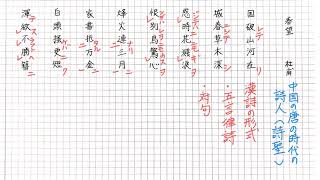 春望 杜甫
中国の唐の時代の
詩人(詩聖)
国破山河在
城春草木深
感時花濺涙
恨別鳥驚心
烽火連三月
家書抵万金
白頭掻更短
渾欲不勝簪
漢詩の形式
・五言律詩
・対句